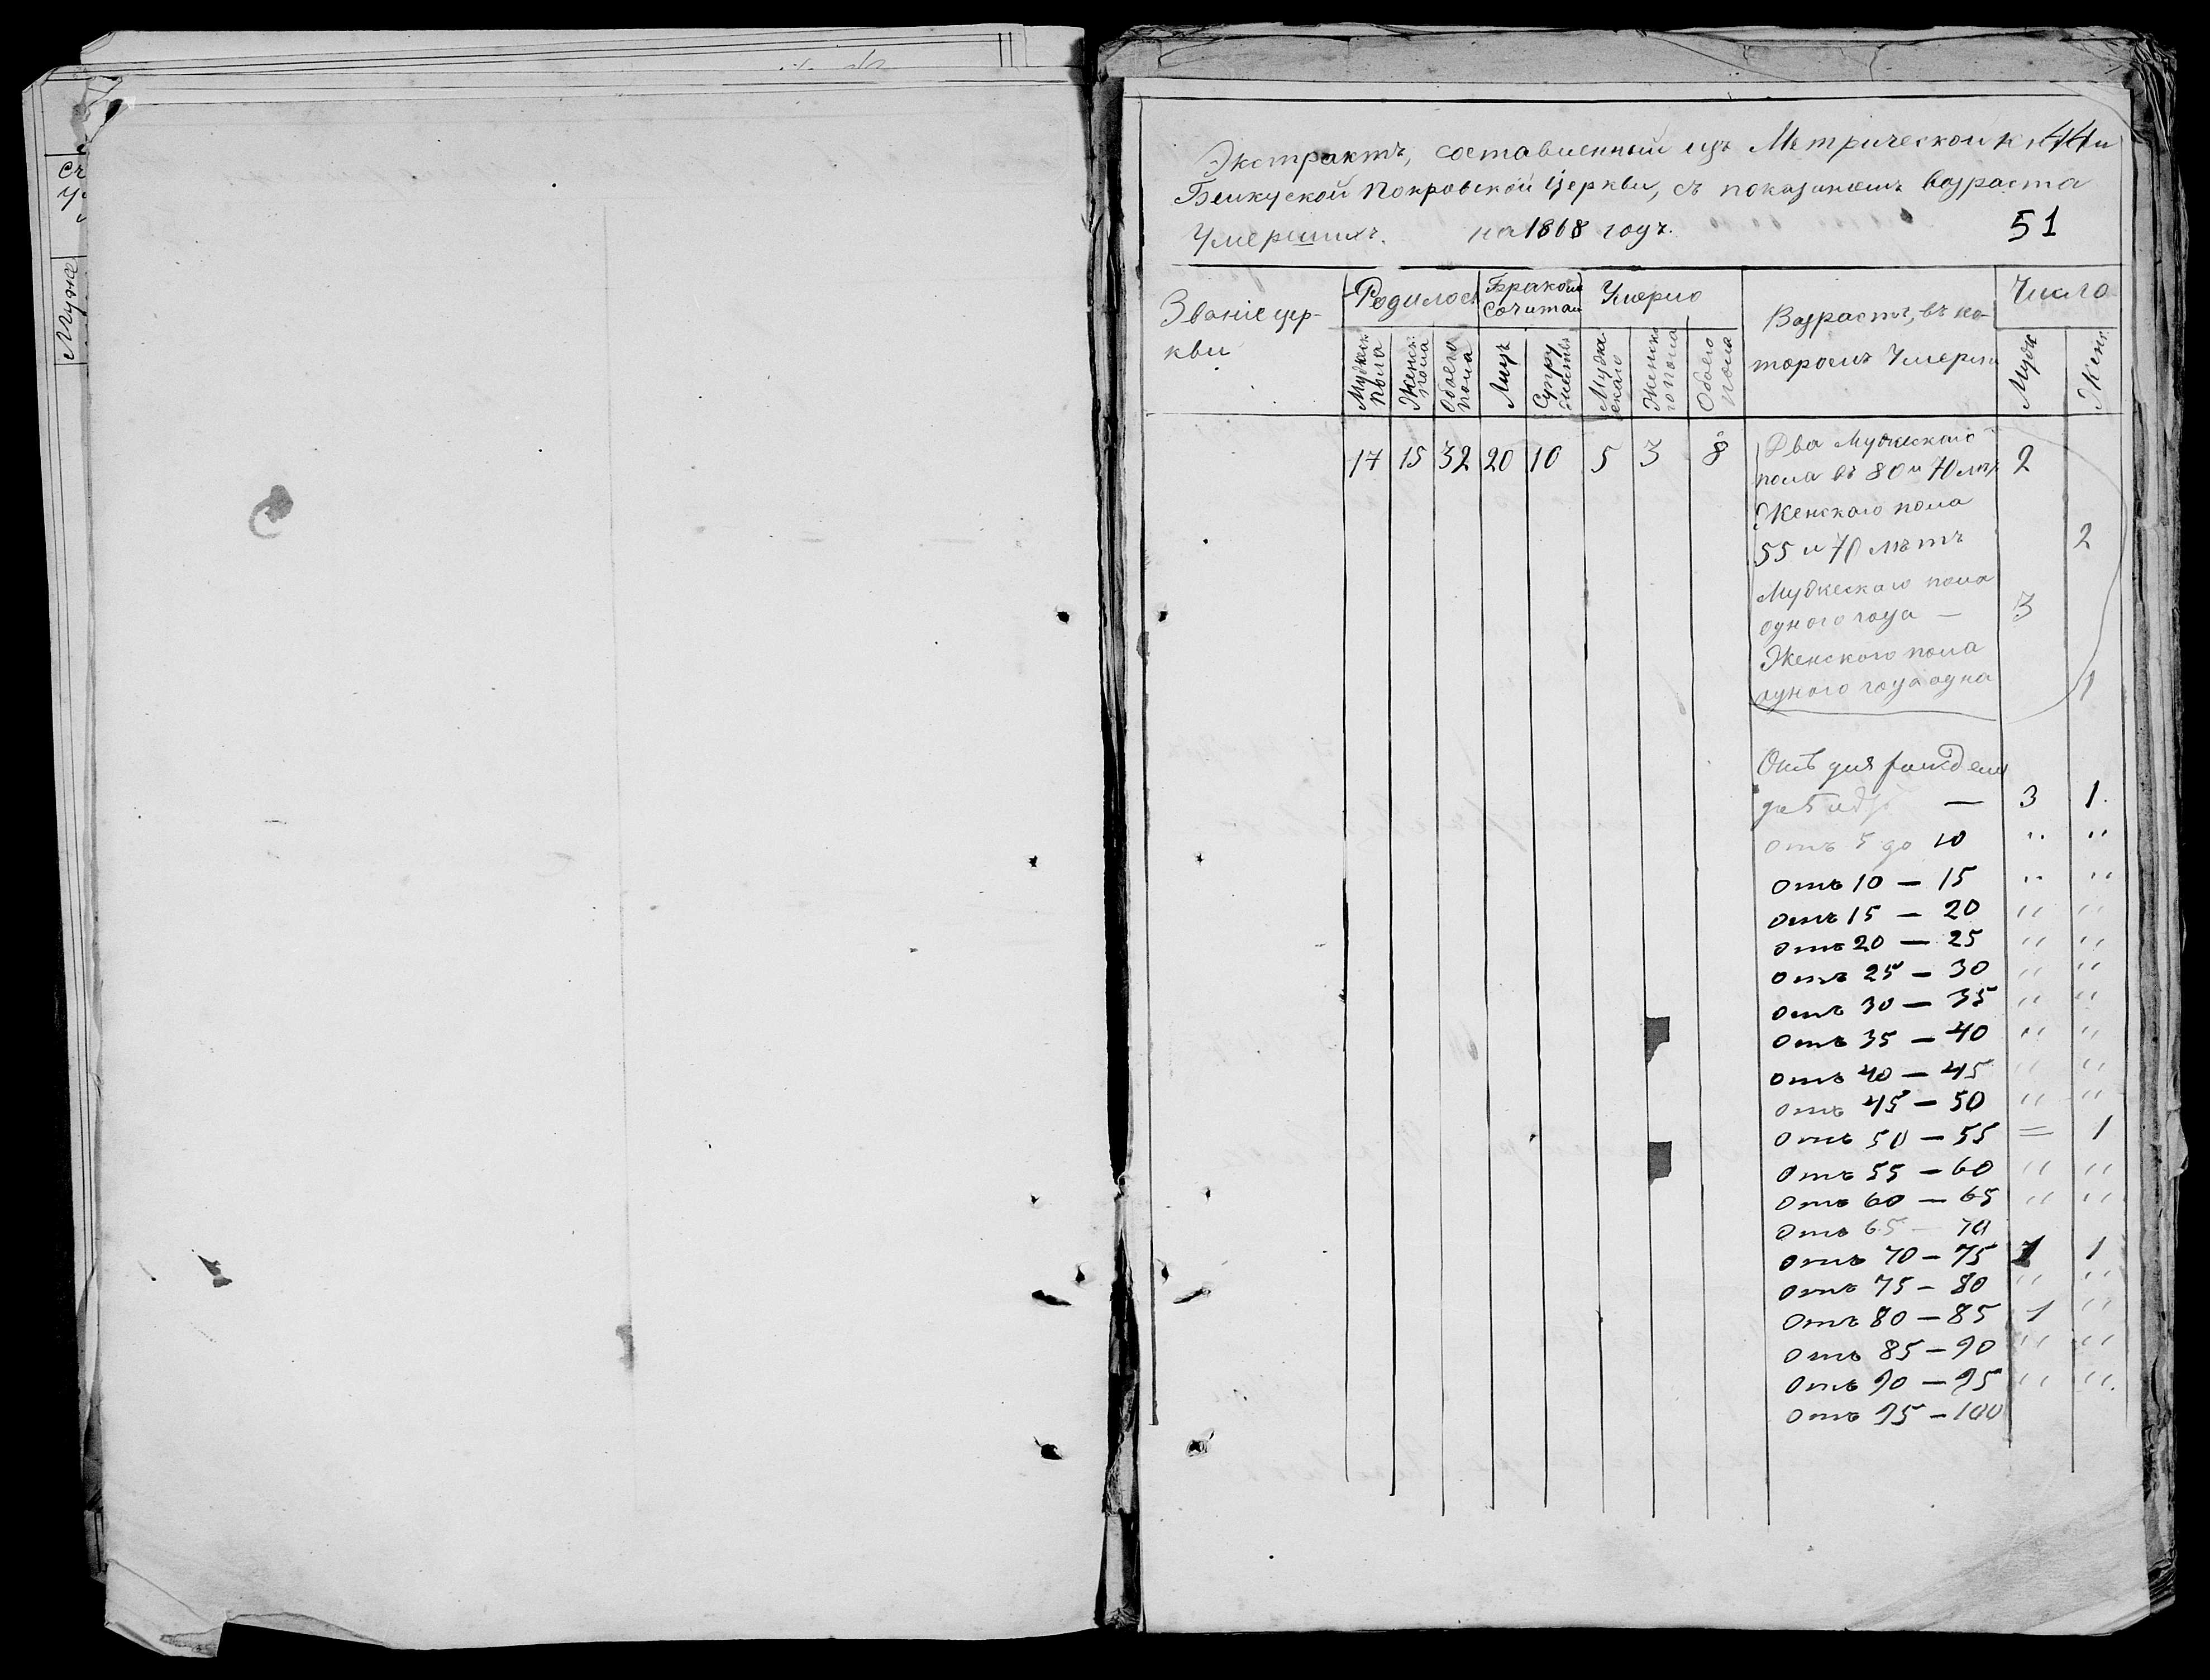 Экстрактъ, составленный изъ Метрической
44
Бейкуской Покровской Церкви, съ показаніемъ возраста
Умершихъ. на 1868 годъ.
51
Званіе цер-
кви
Родилось
Мужеск пола
Женск пола
Обоего пола
Браком Сочитан
Лицъ
Супружествъ
Умерло
Мужескаго
Женскаго пола
Обоего пола
Возрастъ, въ ко-
торомъ Умерли
Число
Муж
Жен
17 15 32 20 10 5 3 8
Два Мужескаго
пола въ 80 и 70 лѣтъ 2
Женскаго пола
55 и 70 лѣтъ 2
Мужескаго пола
одного года — 3
Женского пола
одного года одна 1
Отъ дня рожден
до 5 — 3 1.
отъ 5 до 10 " "
отъ 10 — 15 " "
отъ 15 — 20 " "
отъ 20 — 25 " "
отъ 25 — 30 " "
отъ 30 — 35 " "
отъ 35 — 40 " "
отъ 40 — 45 " "
отъ 45 — 50 " "
отъ 50 — 55 = 1
отъ 55 — 60 " "
отъ 60 — 65 " "
отъ 65 — 70
отъ 70 — 75 1 1
отъ 75 — 80 " "
отъ 80 — 85 1 "
отъ 85 — 90 " "
отъ 90 — 95 " ".
отъ 95 — 100
Муже